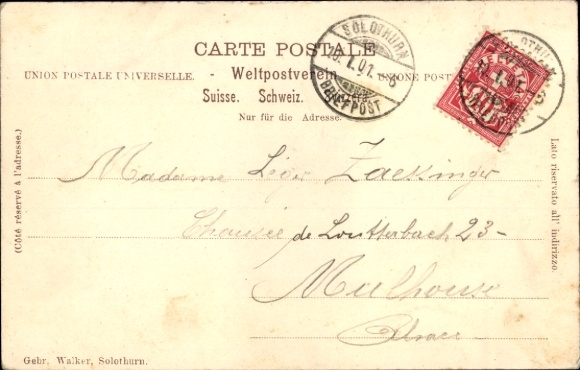 CARTE POSTALE
UNION POSTALE UNIVERSELLE. - Weltpostverein UNIONE POST
Suisse. Schweiz.
Nur für die Adresse.
SOLOTHURN
I. 01. 6
BRIEFPOST
HELVETIA
(Côté réservé à l'adresse.)
Lato riservato all' indirizzo.
Madame Léger Zackinger
Chausée de Loutterbach 23-
Mulhouse
Alsace
Gebr. Walker, Solothurn.